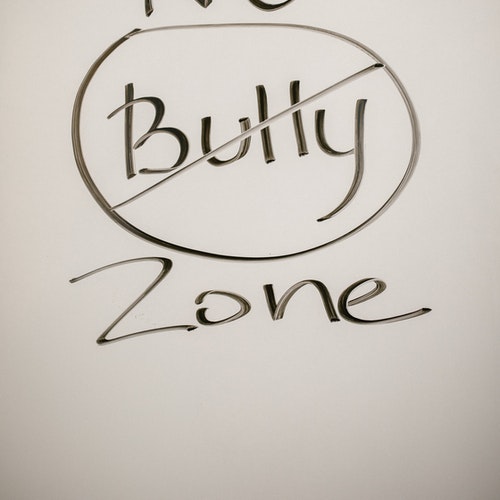 No
Bully
Zone